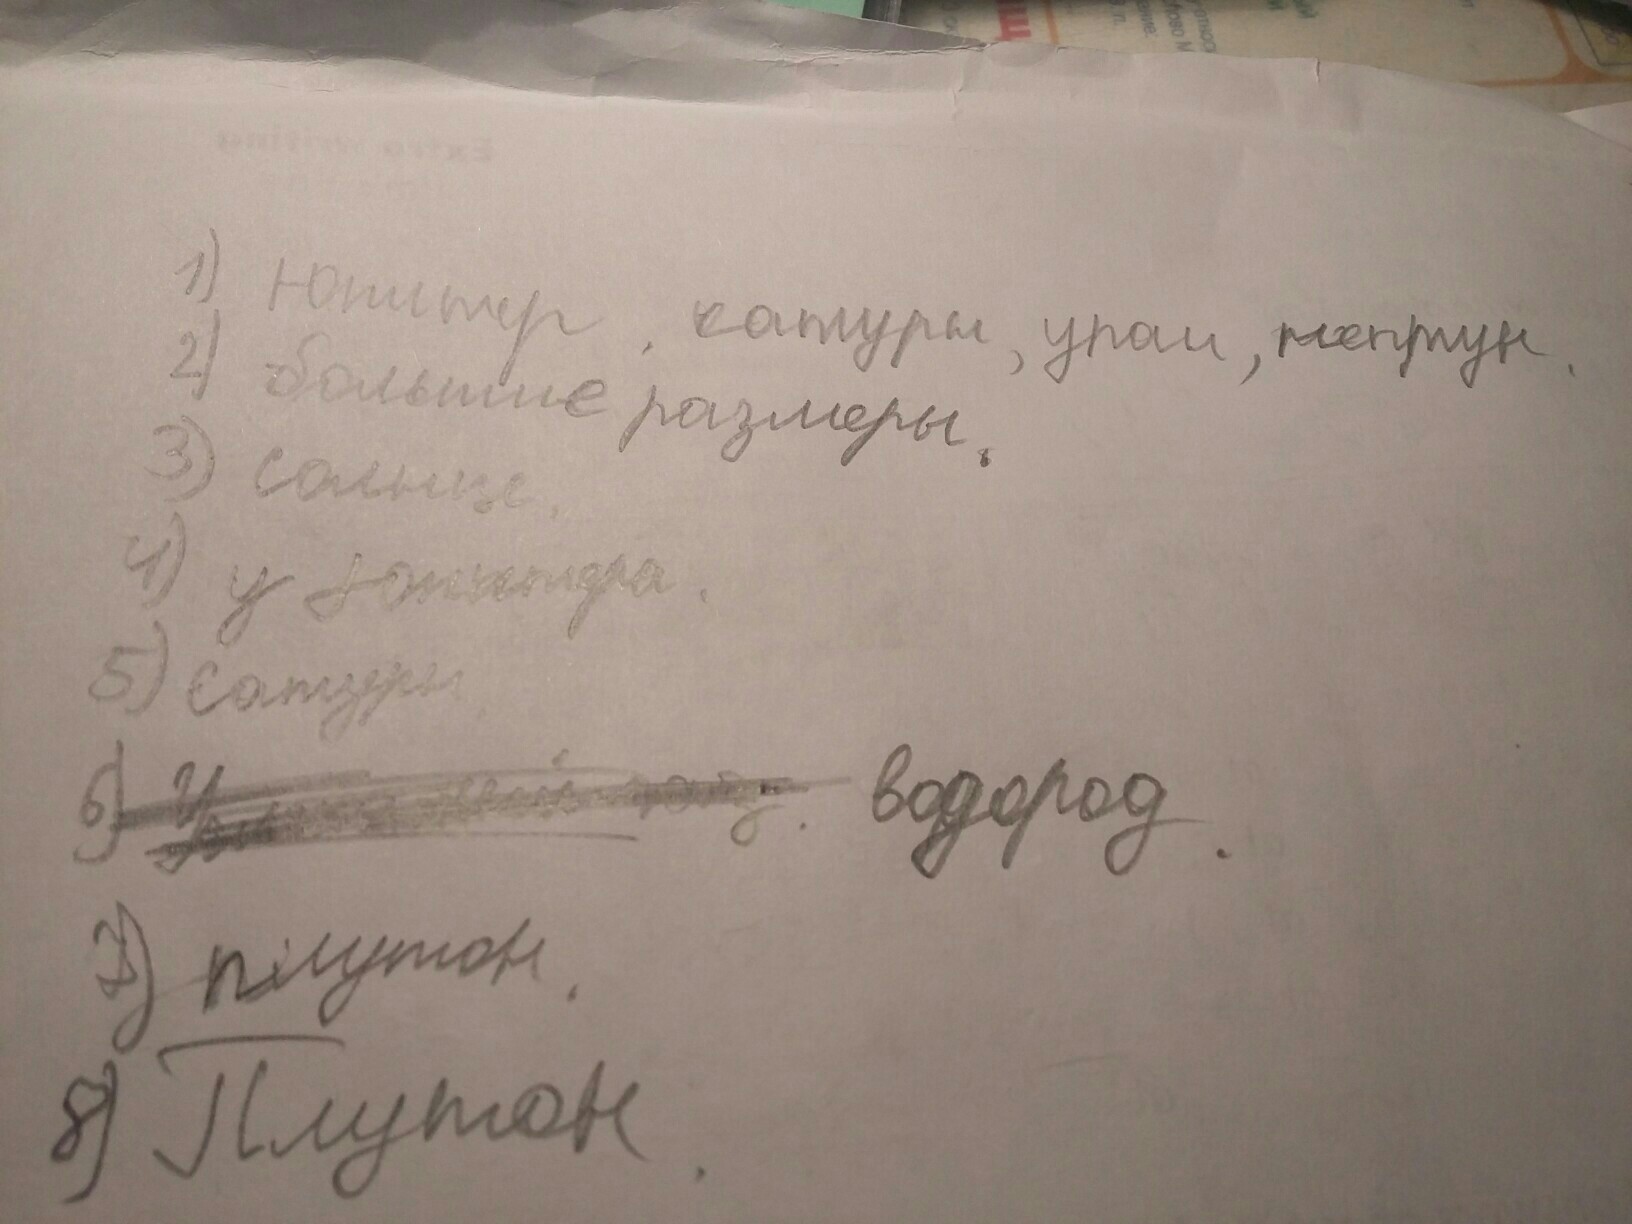 Extra writing
1) Юпитер, сатурн, уран, нептун.
2) большие размеры.
3) солнце.
4) у юпитера.
5) сатурн
6) водород.
7) плутон.
8) Плутон.